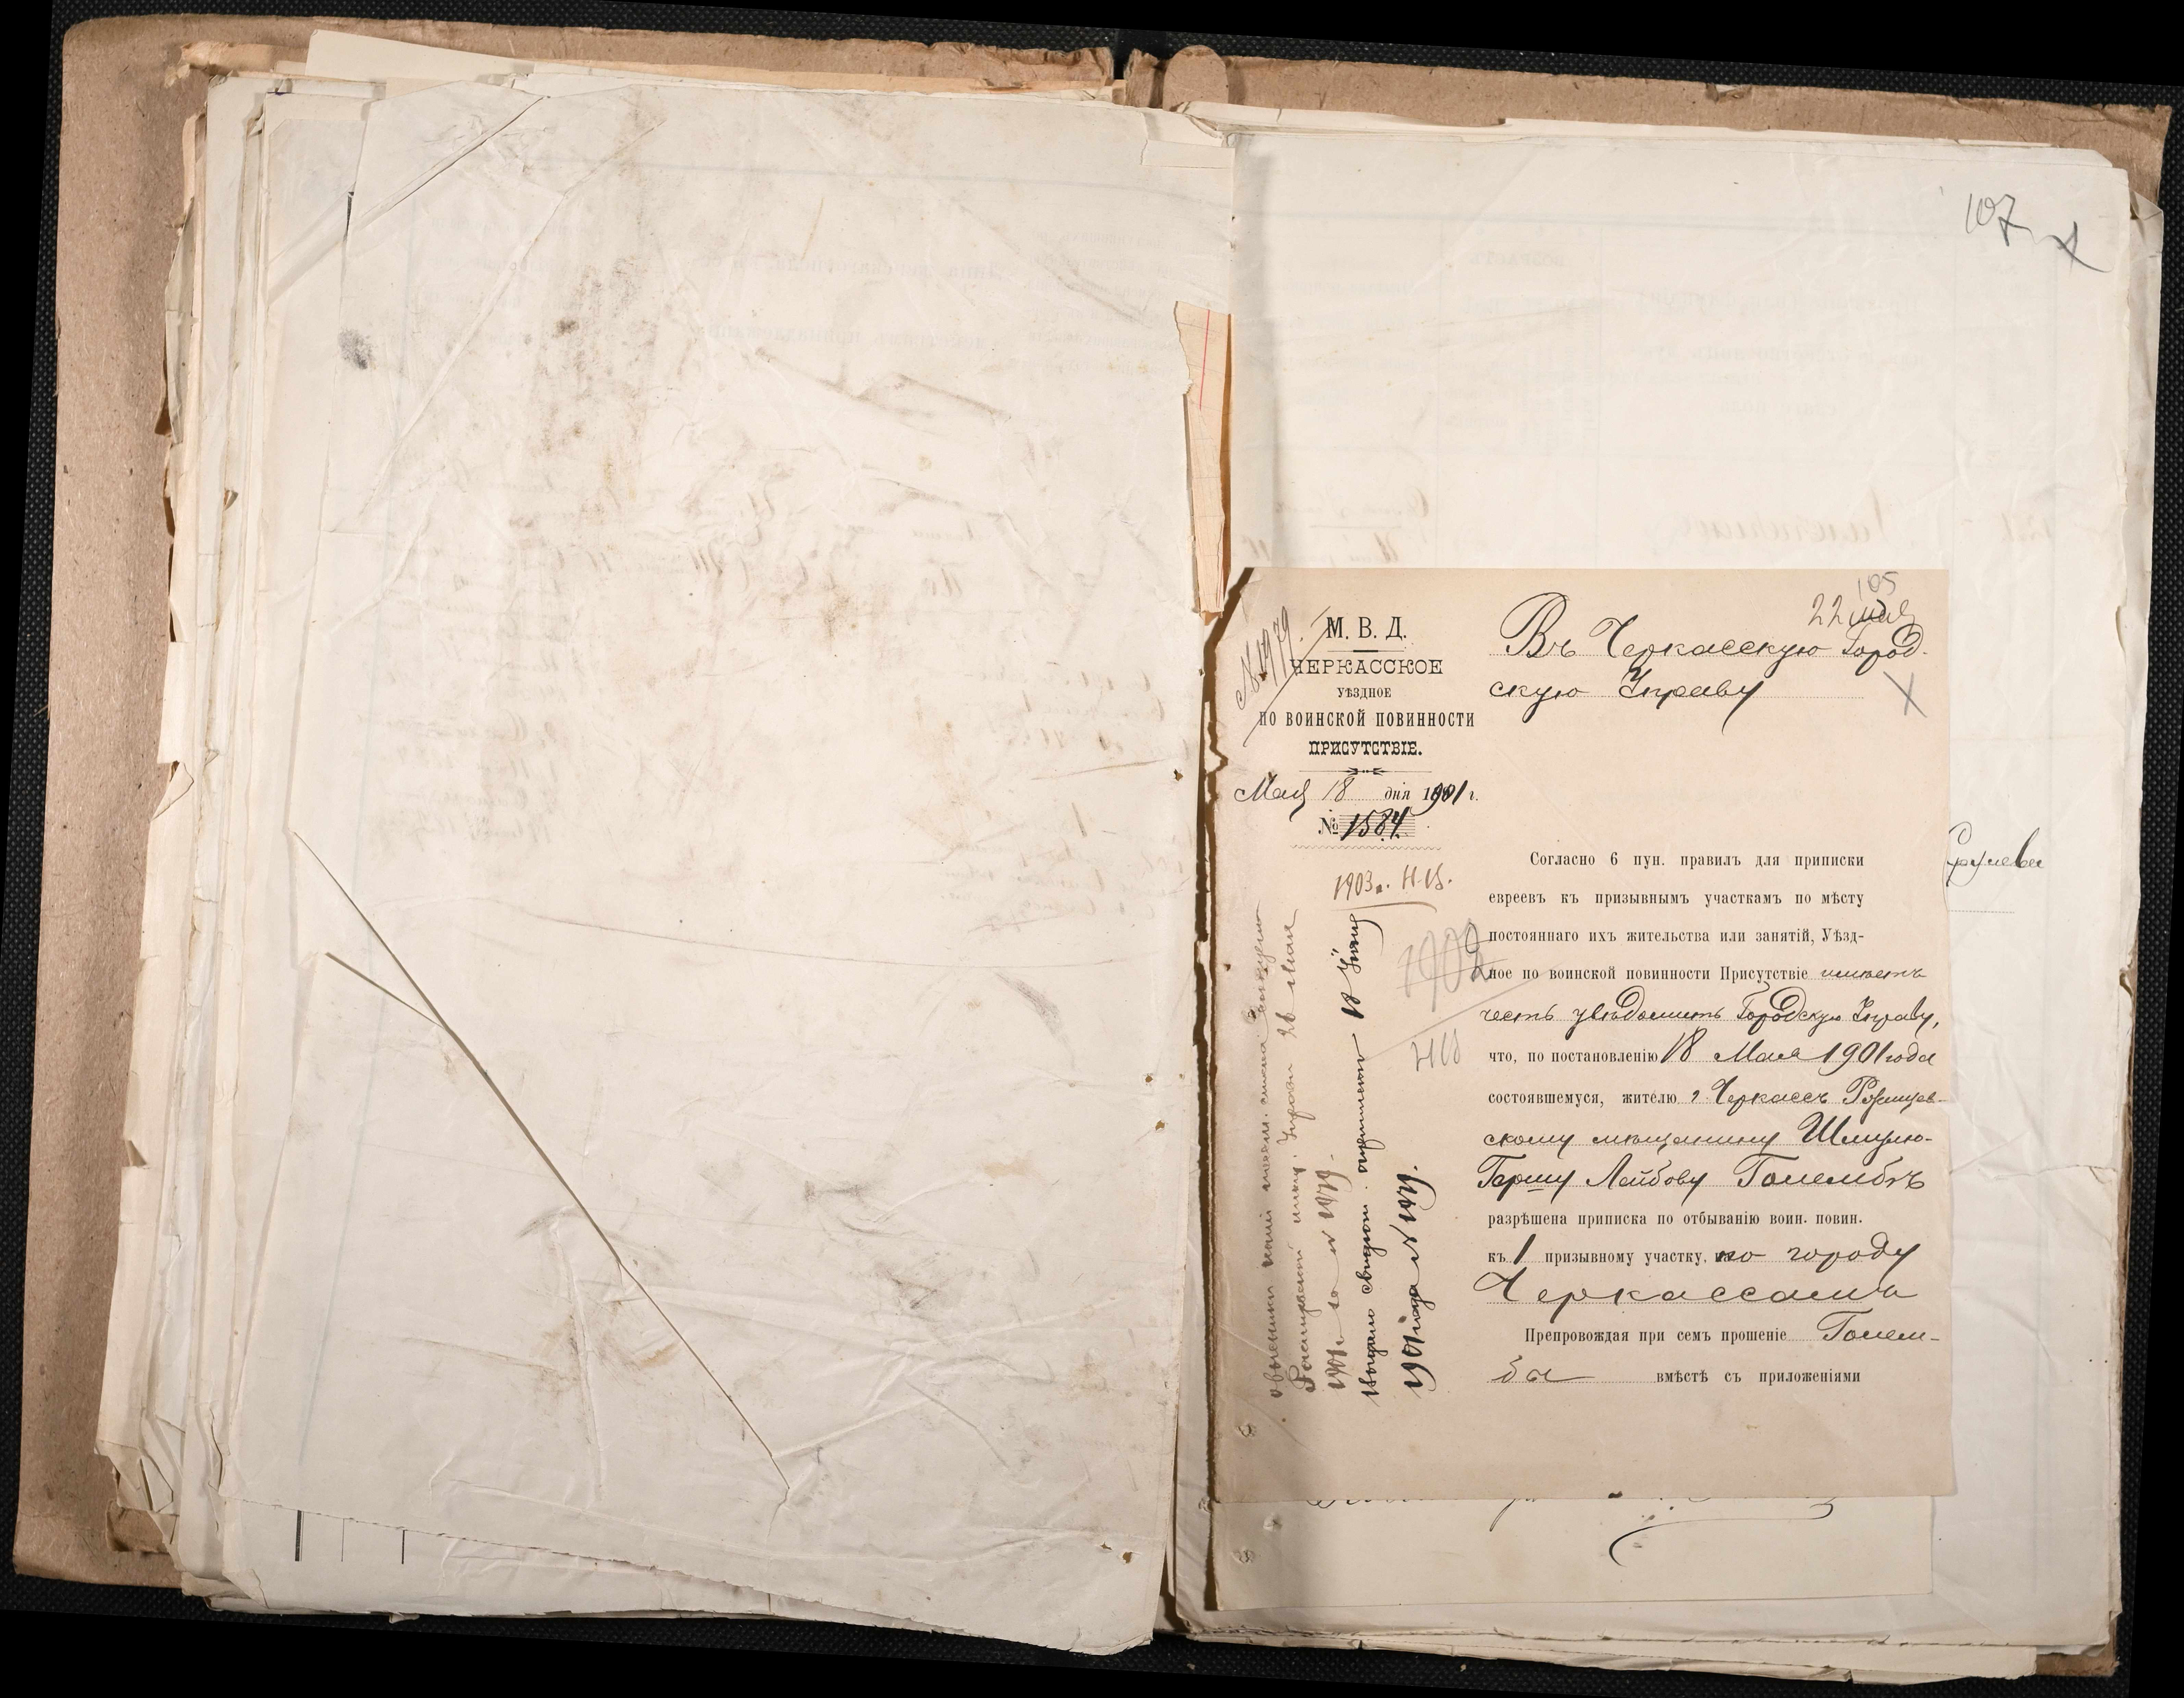 107
105
22 мая
№ 1979
М. В. Д.
ЧЕРКАССКОЕ
УѢЗДНОЕ
ПО ВОИНСКОЙ ПОВИННОСТИ
ПРИСУТСТВІЕ.
Мая 18 дня 1901 г.
№ 1584
Въ Черкасскую Город-
скую Управу
1903 г. Н.В.
1902
Согласно 6 пун. правилъ для приписки
евреевъ къ призывнымъ участкамъ по мѣсту
постояннаго ихъ жительства или занятій, Уѣзд-
ное по воинской повинности Присутствіе имѣетъ
честь увѣдомить Городскую Управу,
что, по постановленію 18 Мая 1901 года
состоявшемуся, жителю г. Черкассъ
скому мѣщанину Шмулю-
Гершу Лейбову Голембѣ
разрѣшена приписка по отбыванію воин. повин.
къ 1 призывному участку, по городу
Черкассамъ
Препровождая при семъ прошеніе Голем-
бы вмѣстѣ съ приложеніями
Управы 26 мая
1901 г. за № 1979.
Выдано свидѣт. 18 Іюня
1901 года № 1979.